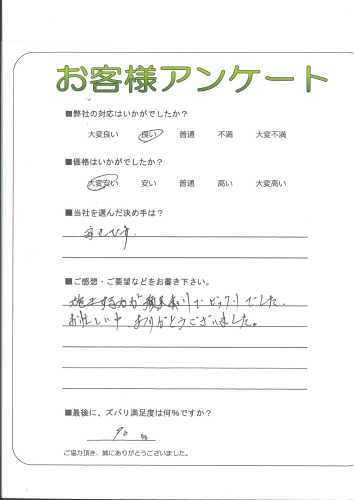 お客様アンケート
■弊社の対応はいかがでしたか?
大変良い 良い 普通 不満 大変不満
■価格はいかがでしたか?
大変安い 安い 普通 高い 大変高い
■当社を選んだ決め手は?
■ご感想・ご要望などをお書き下さい。
でビックリでした。
お忙しい中 ありがとうございました。
■最後に、ズバリ満足度は何%ですか?
90 %
ご協力頂き、誠にありがとうございました。